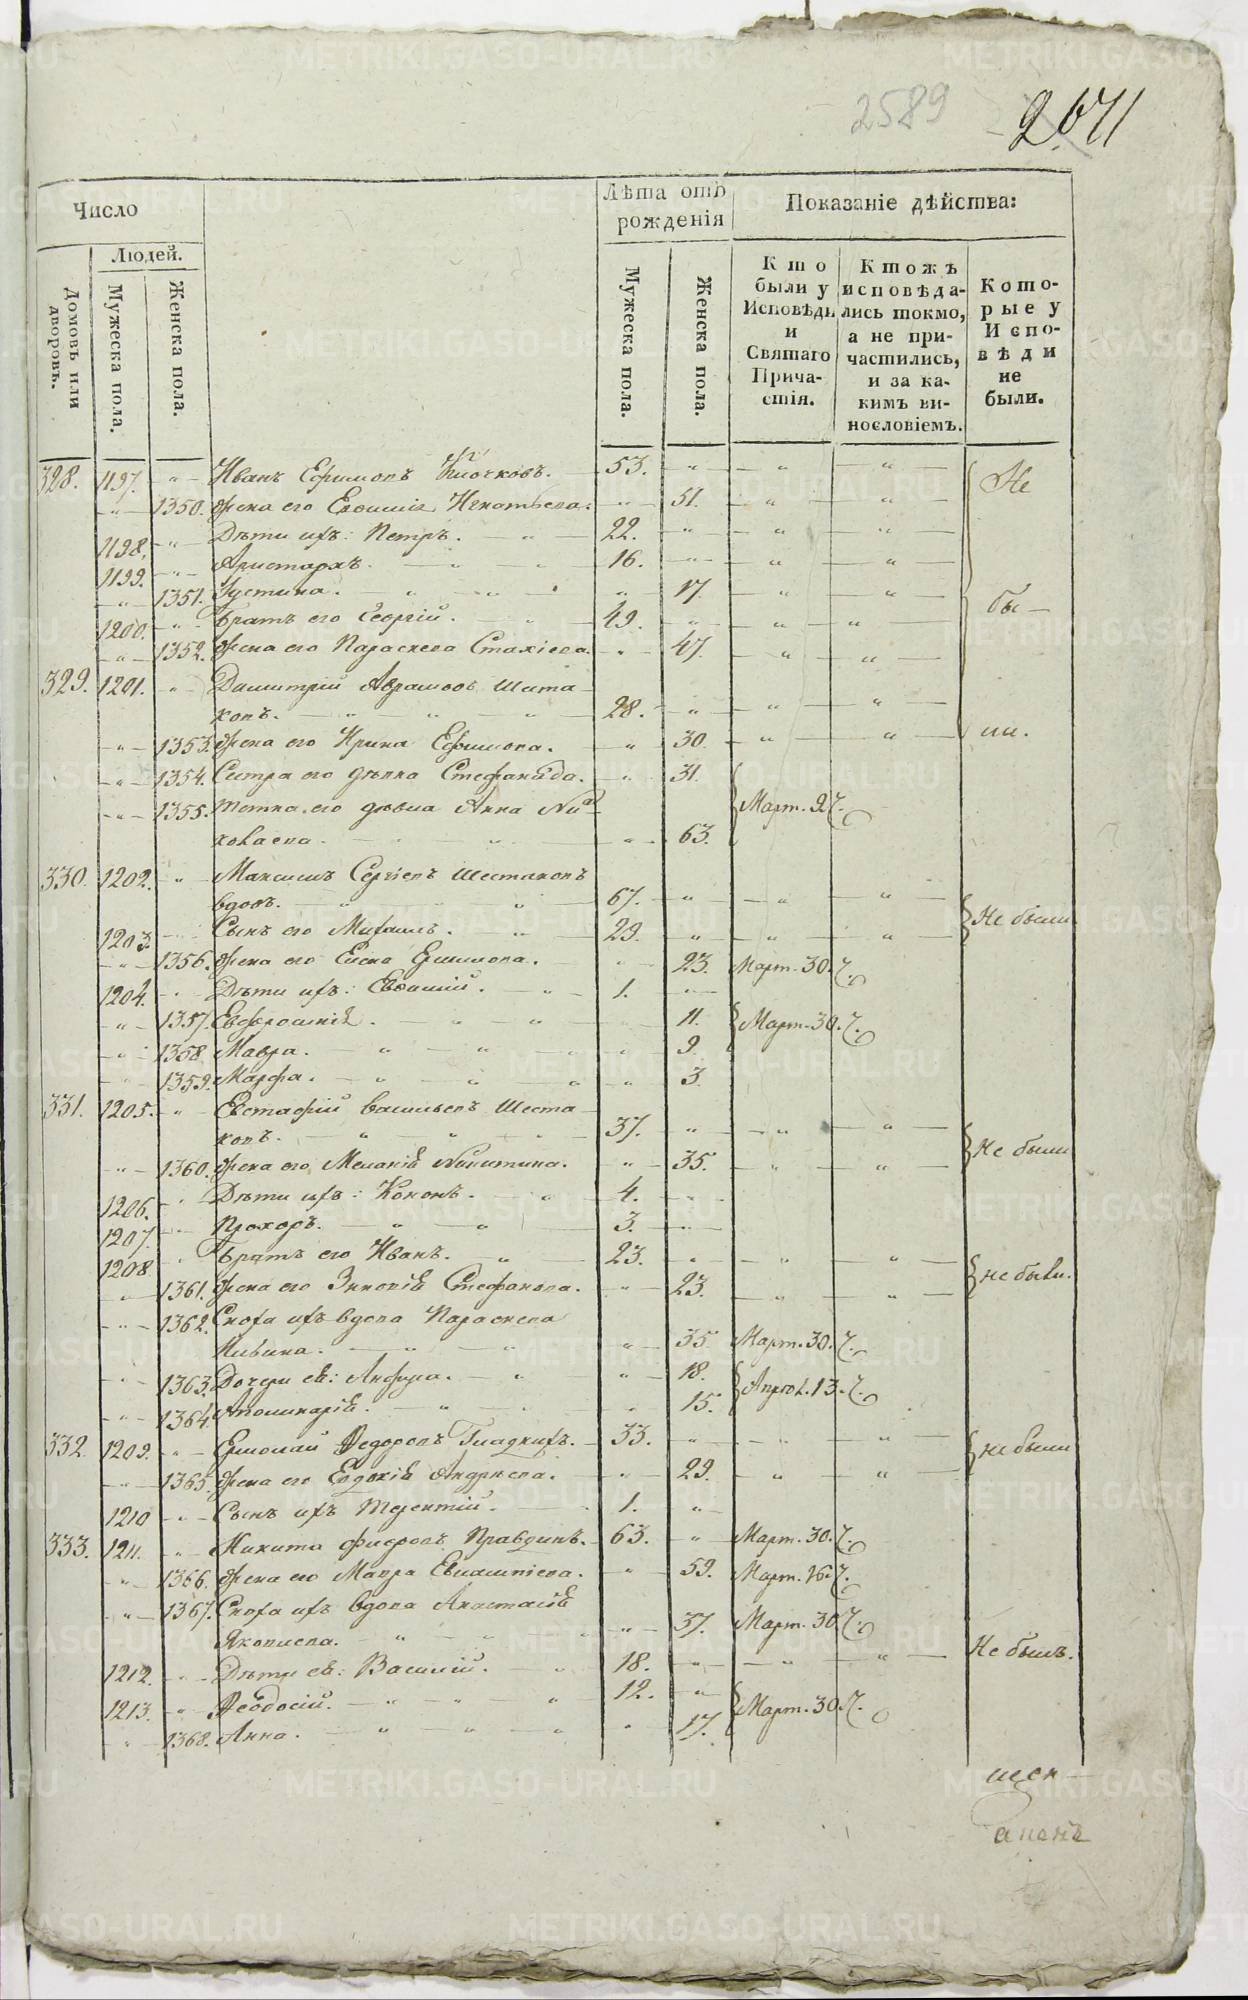 2589
2671
Число
Лѣта отъ рожденія
Показаніе дѣйства:
Людей.
Домовъ или дворовъ.
Мужеска пола.
Женска пола.
Мужеска пола.
Женска пола.
Кто были у Исповѣди и Святаго Причастія.
Ктожъ исповѣдались токмо, а не причастились, и за какимъ винословіемъ.
Которые у Исповѣди не были.
328. 1197. „ Иванъ Ефимовъ Клочковъ. 53. „ „ „ Не
„ 1350. Жена его Евѳимія Игнатьева. „ 51. „ „
1198. „ Дѣти ихъ: Петръ. „ 22. „ „ „
1199. „ Аристархъ. „ „ 16. „ „ „
„ 1351. Устина. „ „ „ 17. „ „
1200. „ Братъ его Георгій. „ 49. „ „ „ бы-
„ 1352. Жена его Параскева Стахіева. „ 47. „ „
329. 1201. „ Димитрій Аврамовъ Шита-
ковъ. „ „ „ 28. „ „ „
„ 1353. Жена его Ирина Ефимова. „ 30. „ „ ли.
„ 1354. Сестра его дѣвка Стефанида. „ 31.
„ 1355. Тетка его дѣвка Анна Ни- Март. 27.
колаева. „ „ 63.
330. 1202. „ Максимъ Сергіевъ Шестаковъ
вдовъ. „ „ 67. „ „ „
1203. Сынъ его Михаилъ. „ 29. „ „ „ Не были
„ 1356. Жена его Елена Ермилова. „ 23. Март. 30. 7.
1204. „ Дѣти ихъ: Евѳимій. „ 1. „
„ 1357. Евфросинія. „ „ 11. Март. 30. 7.
„ 1358. Мавра. „ „ „ „ 9.
„ 1359. Марфа. „ „ „ „ 3.
331. 1205. „ Евстафій Васильевъ Шеста-
ковъ. „ „ „ 37. „ „ „
„ 1360. Жена его Меланія Никитина. „ 35. „ „ Не были
1206. „ Дѣти ихъ: Кононъ. „ 4. „
1207. „ Прохоръ. „ „ 3. „
1208. „ Братъ его Иванъ. „ 23. „ „ „
„ 1361. Жена его Зиновія Стефанова. „ 23. „ „ не были.
„ 1362. Сноха ихъ вдова Параскева
„ „ „ 35. Март. 30. 7.
„ 1363. Дочери ея: Анфиса. „ „ 18. Апрѣл. 13. 7.
„ 1364. Аполинарія. „ „ „ 15.
332. 1209. „ Ермолай Ѳедоровъ Гладкихъ. 33. „ „ „ не были
„ 1365. Жена его Евдокія Андреева. „ 29. „ „
1210. „ Сынъ ихъ Терентій. 1. „
333. 1211. „ Никита Фирсовъ Правдинъ. 63. „ Март. 30. 7.
„ 1366. Жена его Мавра Евлампіева. „ 59. Март. 16. 7.
„ 1367. Сноха ихъ вдова Анастасія
Яковлева. „ „ „ 37. Март. 30. 7.
1212. „ Дѣти ея: Василій. „ 18. „ „ „ Не былъ.
1213. „ Ѳеодосій. „ „ „ 12. „ Март. 30. 7.
„ 1368. Анна. „ „ „ „ 17.